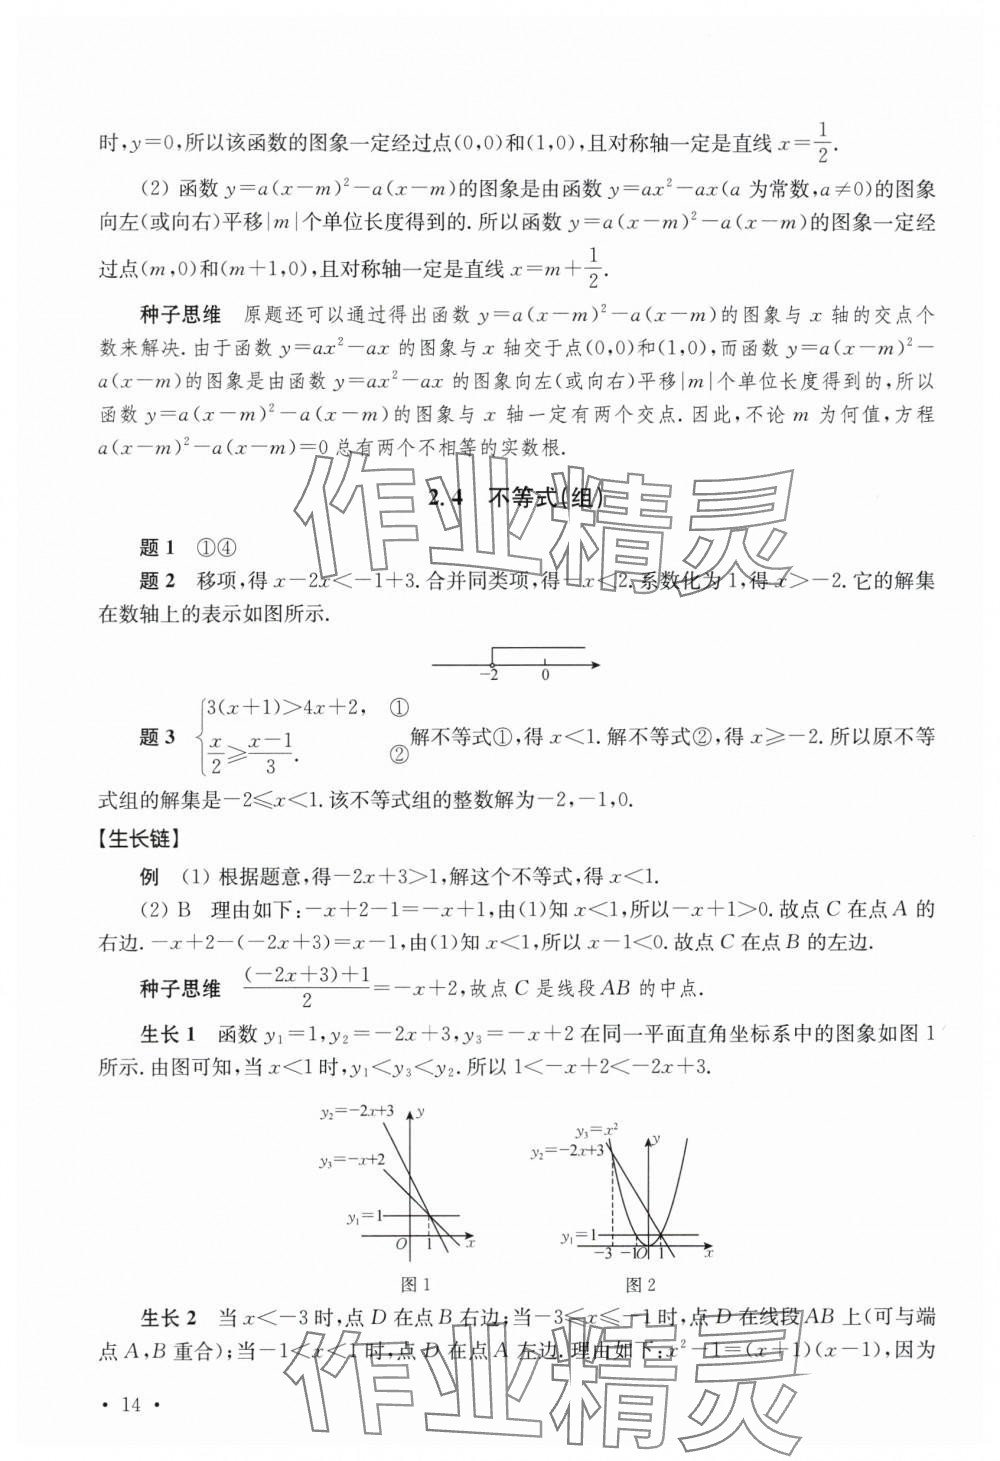 时,y=0,所以该函数的图象一定经过点(0,0)和(1,0),且对称轴一定是直线 x=1/2.
(2) 函数 y=a(x−m)²−a(x−m)的图象是由函数 y=ax²−ax(a 为常数,a≠0)的图象
向左(或向右)平移|m|个单位长度得到的. 所以函数 y=a(x−m)²−a(x−m)的图象一定经
过点(m,0)和(m+1,0),且对称轴一定是直线 x=m+1/2.
种子思维 原题还可以通过得出函数 y=a(x−m)²−a(x−m)的图象与 x 轴的交点个
数来解决. 由于函数 y=ax²−ax 的图象与 x 轴交于点(0,0)和(1,0),而函数 y=a(x−m)²−
a(x−m)的图象是由函数 y=ax²−ax 的图象向左(或向右)平移|m|个单位长度得到的,所以
函数 y=a(x−m)²−a(x−m)的图象与 x 轴一定有两个交点. 因此,不论 m 为何值,方程
a(x−m)²−a(x−m)=0 总有两个不相等的实数根.
2.4 不等式(组)
题 1 ①④
题 2 移项,得 x−2x<−1+3. 合并同类项,得−x<2. 系数化为 1,得 x>−2. 它的解集
在数轴上的表示如图所示.
−2 0
题 3 {3(x+1)>4x+2, ① x/2≥(x−1)/3. ② 解不等式①,得 x<1. 解不等式②,得 x≥−2. 所以原不等
式组的解集是−2≤x<1. 该不等式组的整数解为−2,−1,0.
【生长链】
例 (1) 根据题意,得−2x+3>1,解这个不等式,得 x<1.
(2) B 理由如下:−x+2−1=−x+1,由(1)知 x<1,所以−x+1>0. 故点 C 在点 A 的
右边. −x+2−(−2x+3)=x−1,由(1)知 x<1,所以 x−1<0. 故点 C 在点 B 的左边.
种子思维 ((−2x+3)+1)/2=−x+2,故点 C 是线段 AB 的中点.
生长 1 函数 y₁=1,y₂=−2x+3,y₃=−x+2 在同一平面直角坐标系中的图象如图 1
所示. 由图可知,当 x<1 时,y₁<y₃<y₂. 所以 1<−x+2<−2x+3.
y₂=−2x+3 y
y₃=−x+2
y₁=1
O 1 x
图 1
y₃=x²
y₂=−2x+3 y
y₁=1
−3 −1 O 1 x
图 2
生长 2 当 x<−3 时,点 D 在点 B 右边;当−3≤x≤−1 时,点 D 在线段 AB 上(可与端
点 A,B 重合);当−1<x<1 时,点 D 在点 A 左边. 理由如下:x²−1=(x+1)(x−1),因为
• 14 •
作业精灵
作业精灵